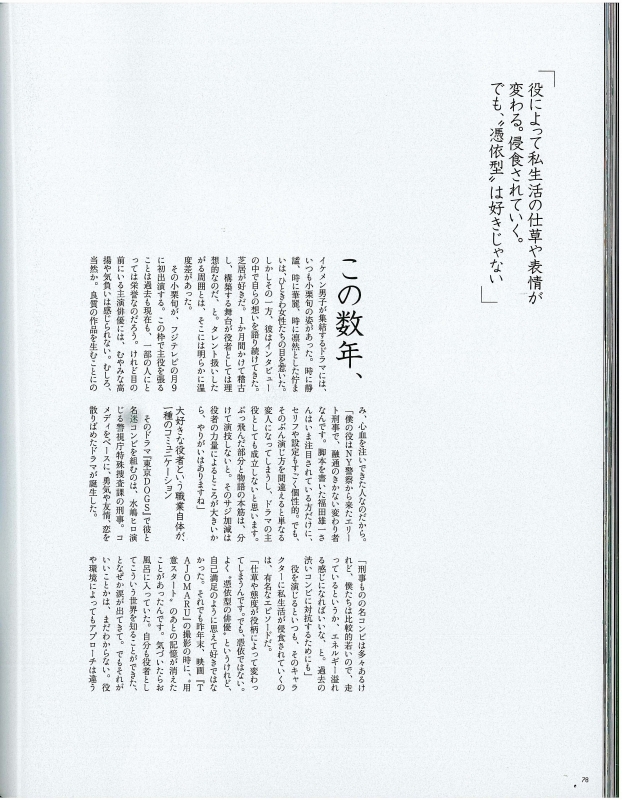 「役によって私生活の仕草や表情が
変わる。侵食されていく。
でも、〝憑依型〟は好きじゃない」
この数年、
イケメン男子が集結するドラマには、
いつも小栗旬の姿があった。時に静
謐、時に華麗、時に凛然とした佇ま
いは、ひときわ女性たちの目を惹いた。
しかしその一方、彼はインタビュー
の中で自らの想いを語り続けてきた。
芝居が好きだ。1か月間かけて稽古
し、構築する舞台が役者としては理
想的なのだ、と。タレント扱いした
がる周囲とは、そこには明らかに温
度差があった。
その小栗旬が、フジテレビの月9
に初出演する。この枠で主役を張る
ことは過去も現在も、一部の人にと
っては栄誉なのだろう。けれど目の
前にいる主演俳優には、むやみな高
揚や気負いは感じられない。むしろ、
当然か。良質の作品を生むことにの
み、心血を注いできた人なのだから。
「僕の役はNY警察から来たエリー
ト刑事で、融通のきかない変わり者
なんです。脚本を書いた福田雄一さ
んはいま注目されている方だけに、
セリフや設定もすごく個性的。でも、
そのぶん演じ方を間違えると単なる
変人になってしまうし、ドラマの主
役としても成立しないと思います。
ぶっ飛んだ部分と物語の本筋は、分
けて演技しないと。そのサジ加減は
役者の力量によるところが大きいか
ら、やりがいはありますね」
大好きな役者という職業自体が、
一種のコミュニケーション
そのドラマ『東京DOGS』で彼と
名迷コンビを組むのは、水嶋ヒロ演
じる警視庁特殊捜査課の刑事。コ
メディをベースに、勇気や友情、恋を
散りばめたドラマが誕生した。
「刑事ものの名コンビは多々あるけ
れど、僕たちは比較的若いので、走
っているというか、エネルギー溢れ
る感じになればいいな、と。過去の
渋いコンビに対抗するためにも」
役を演じるといつも、そのキャラ
クターに私生活が侵食されていくの
は、有名なエピソードだ。
「仕草や態度が役柄によって変わっ
てしまうんです。でも、憑依ではない。
よく〝憑依型の俳優〟というけれど、
自己満足のように思えて好きではな
かった。それでも昨年末、映画『T
AJOMARU』の撮影の時に、〝用
意スタート〟のあとの記憶が消えた
ことがあったんです。気づいたらお
風呂に入っていた。自分も役者とし
てこういう世界を知ることができた、
となぜか涙が出てきて。でもそれが
いいことかは、まだわからない。役
や環境によってもアプローチは違う
78